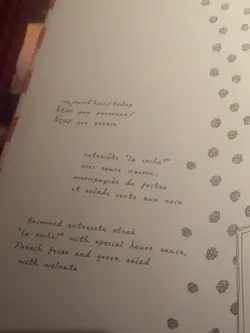 aujourd'hui/today
per personne/
per person
entrecôte "la vache!"
avec sauce maison,
accompagnée de frites
et salade verte aux noix.
trimmed entrecote steak
"la vache!" with special house sauce,
French fries and green salad
with walnuts